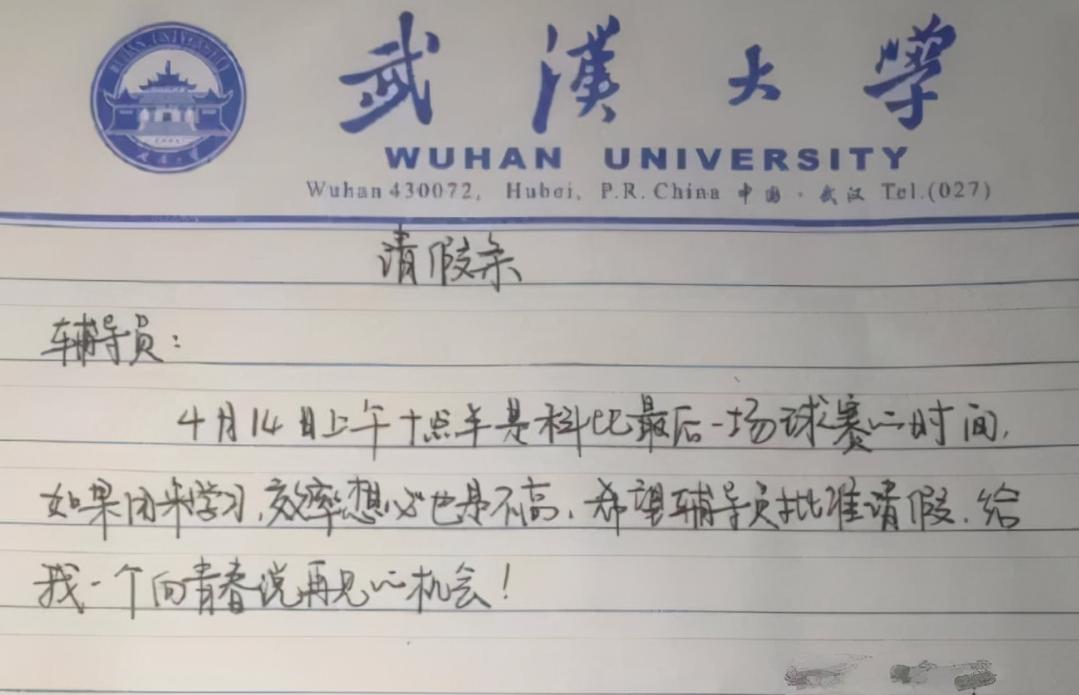 武漢大學
WUHAN UNIVERSITY
Wuhan 430072, Hubei, P.R. China 中国·武汉 Tel.(027)
请假条
辅导员:
4月14日上午十点半是科比最后一场球赛的时间,
如果用来学习,效率想必也是不高,希望辅导员批准请假,给
我一个向青春说再见的机会!